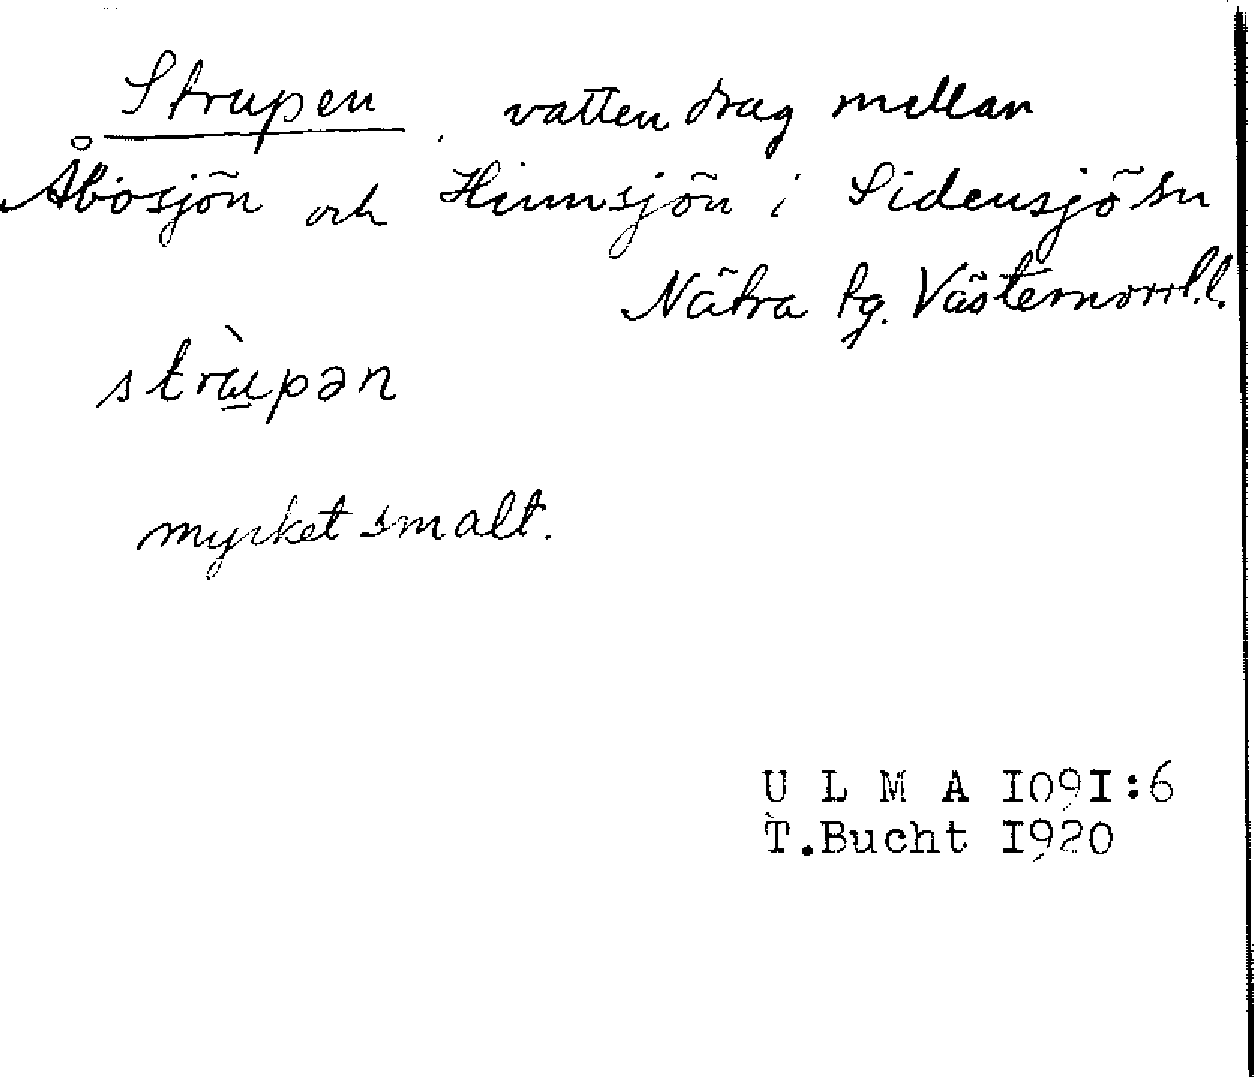 Strupen, vattendrag mellan
Åbosjön och Hinnsjön i Sidensjö sn
Nätra tg. Västernorrl.l.
strùpən
mycket smalt.
U L M A I09I:6
T.Bucht I920